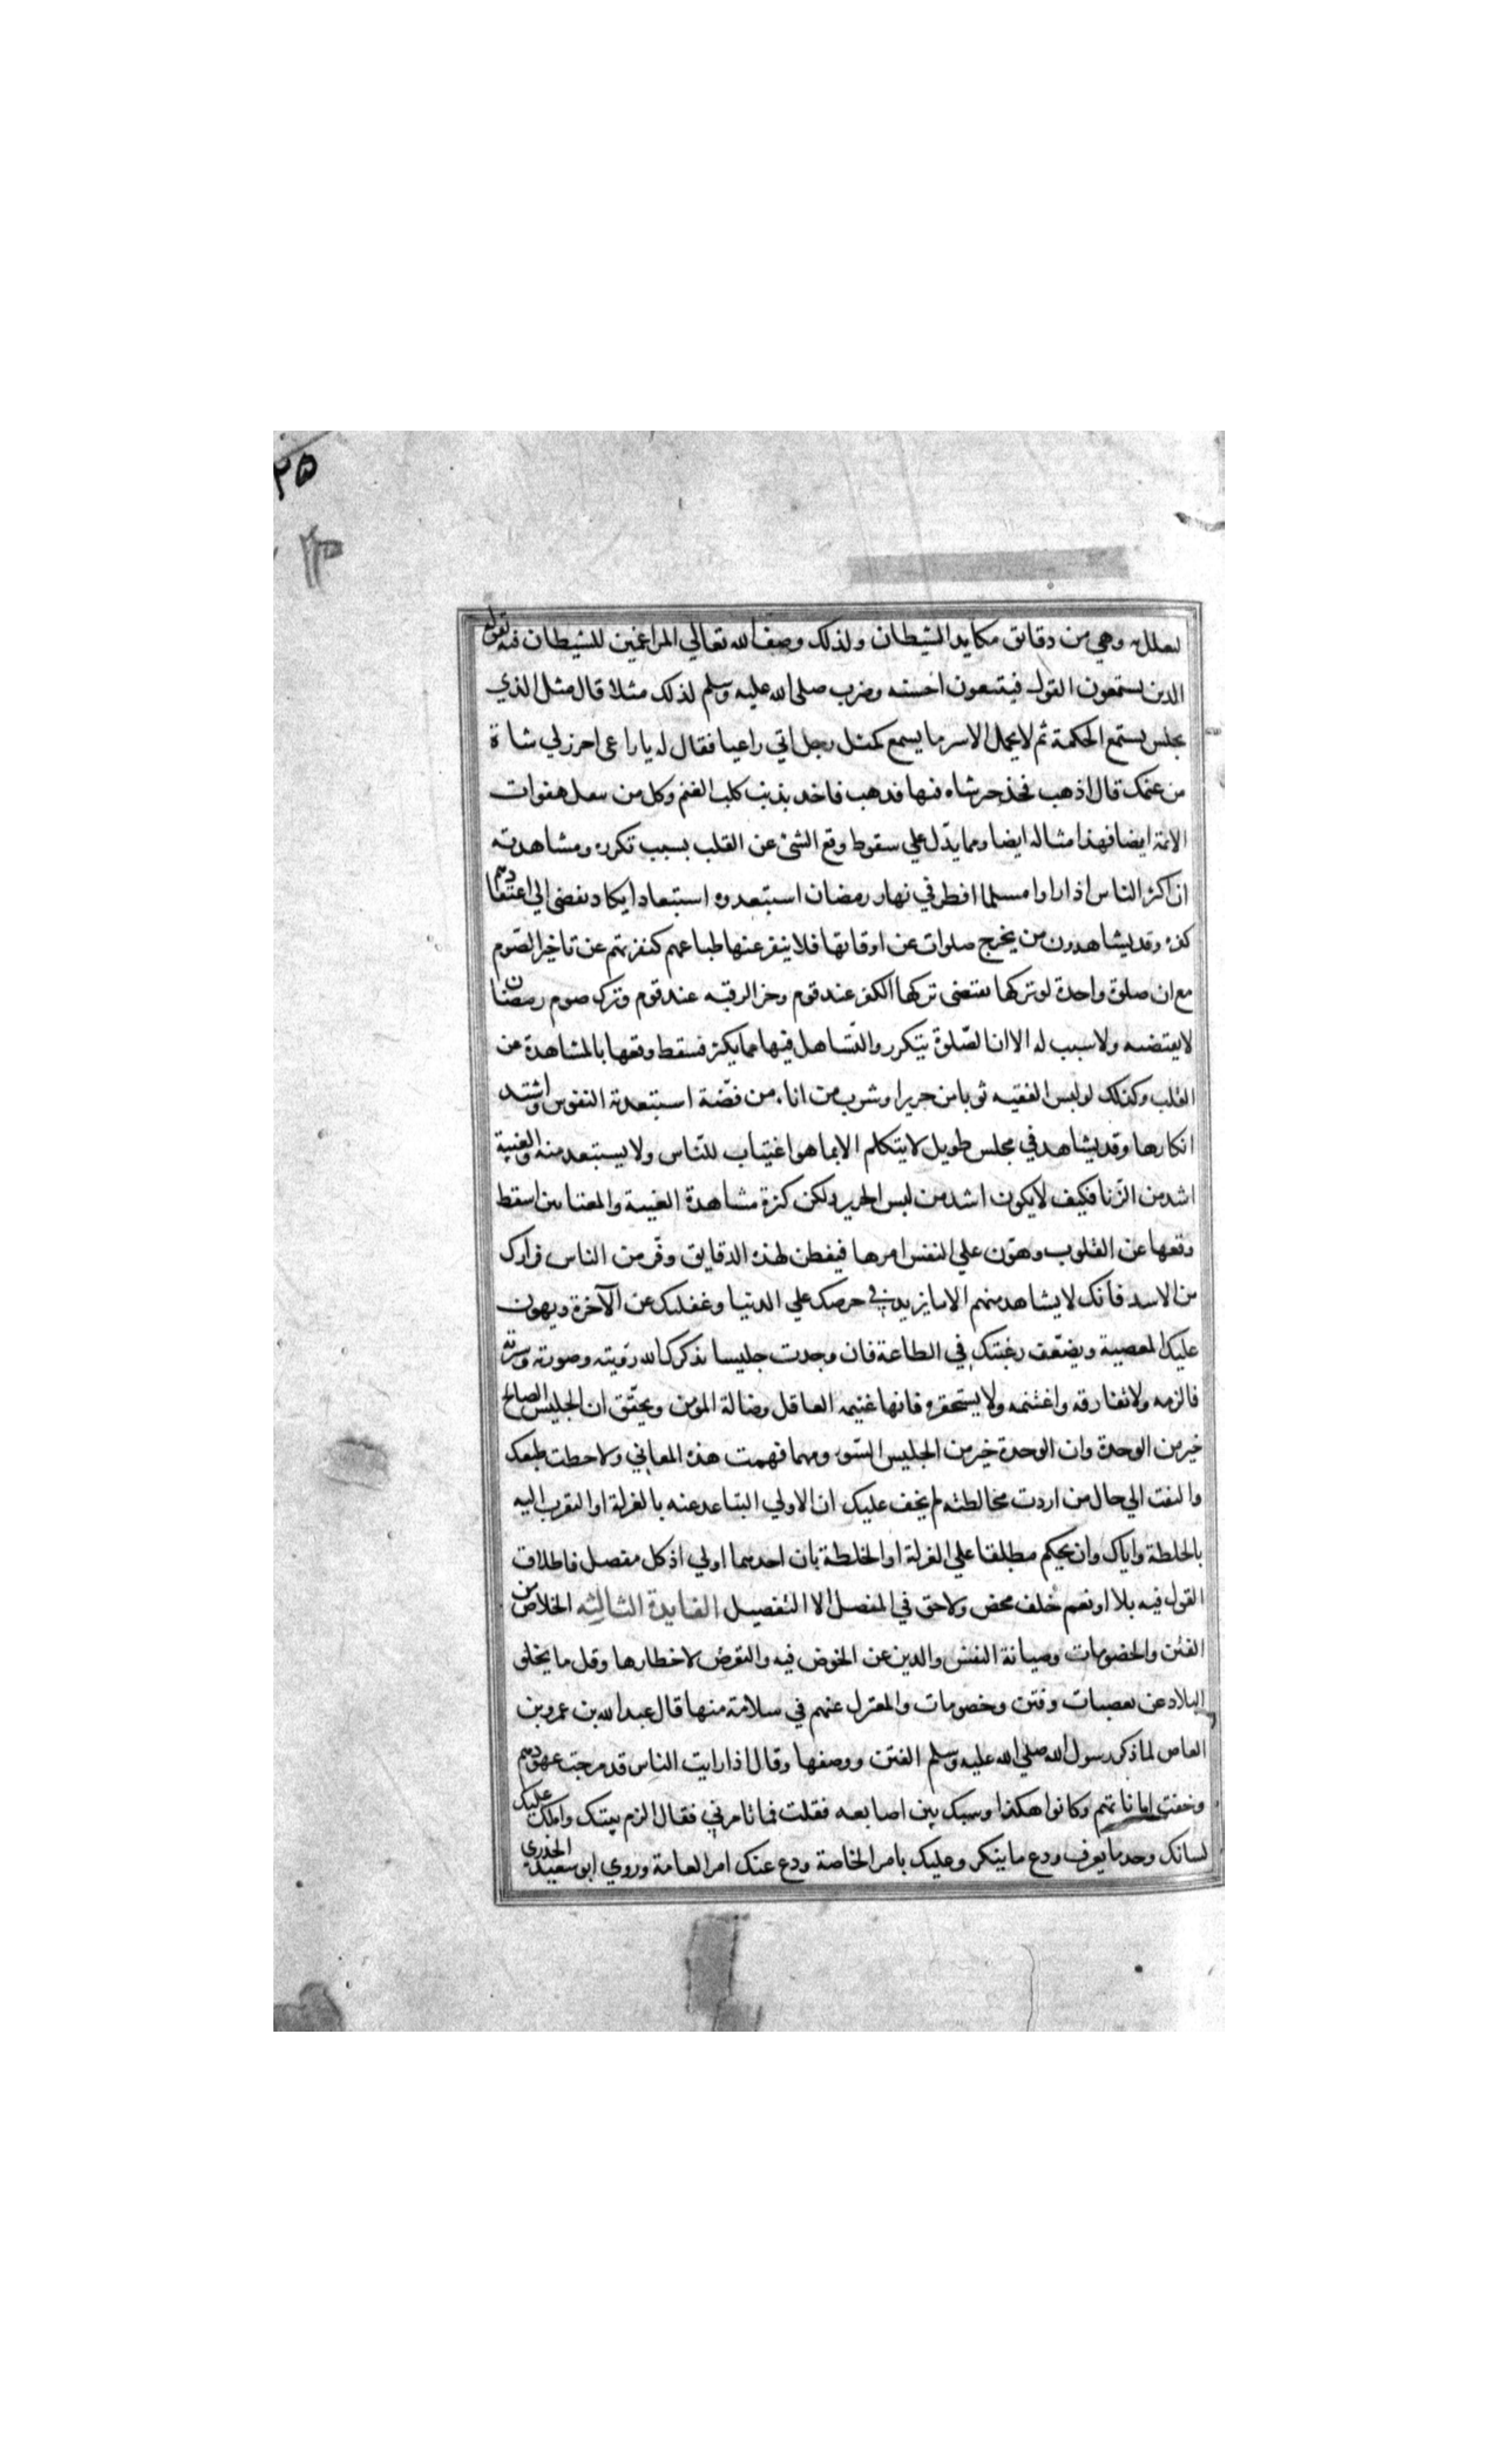 ٢٥
تعلله وهي من دقايق مكايد الشيطان ولذلك وصف الله تعالي المراغمين للشيطان فيه بقوله
الذين يستمعون القول فيتبعون احسنه وضرب صلى الله عليه وسلم لذلك مثلا قال مثل الذي
يجلس يستمع الحكمة ثم لا يحمل الا شر ما يسمع كمثل رجل اتي راعيا فقال له يا راعي اجرزلي شاة
من غنمك قال اذهب فخذ خير شاه فيها فذهب فاخذ بذنب كلب الغنم وكل من ينقل هفوات
الائمة ايضا فهذا مثاله ايضا ومما يدّل علي سقوط وقع الشئ عن القلب بسبب تكرره ومشاهدته
ان اكثر الناس اذا راوا مسلما افطر في نهار رمضان استبعدوه استبعادا يكاد يفضى الي اعتقادهم
كفره وقد يشاهدون من يخرج صلوات عن اوقاتها فلا ينفر عنها طباعهم كنفرتهم عن تاخير الصّوم
مع ان صلوة واحدة لو تركها يقتضى تركها الكفر عند قوم وحز الرقبه عند قوم وترك صوم رمضان
لا يقتضيه ولا سبب له الا ان الصّلوة يتكرر والتّساهل فيها مما يكثر فسقط وقعها بالمشاهدة عن
القلب وكذلك لو لبس الفقيه ثوبا من حرير او شرب من اناء من فضّة استبعدته النفوس واشتد
انكارها وقد يشاهد في مجلس طويل لا يتكلم الا بما هو اغتياب للنّاس ولا يستبعد منه والغيبة
اشد من الزّنا فكيف لا يكون اشد من لبس الحرير ولكن كثرة مشاهدة الغيبة والمغتابين اسقط
وقعها عن القلوب وهوّن علي النفس امرها فيفطن لهذه الدقايق وفّر من الناس فرارك
من الاسد فانك لا يشاهد منهم الا ما يزيد في حرصك علي الدنيا وغفلتك عن الآخرة ويهون
عليك المعصية ويضعّف رغبتك في الطاعة فان وجدت جليسا يذكرك الله رؤيته وصورته وسيرته
فالزمه ولا تفارقه واغتنمه ولا يستحقره فانها غنيمه العاقل وضالة المؤمن ويحقّق ان الجليس الصالح
خير من الوحدة وان الوحدة خير من الجليس السّوء ومهما فهمت هذه المعاني ولاحظت طبعك
والتفت الي حال من اردت مخالطته لم يخف عليك ان الاولي التباعد عنه بالعزلة او التقرب اليه
بالخلطة واياك وان يحكم مطلقا علي العزلة او الخلطة بان احديهما اولي اذ كل مفصل فاطلاق
القول فيه بلا او نعم خلف محض ولا حق في المفصل الا التفصيل الفايدة الثالثه الخلاص من
الفتن والخصومات وصيانة النفس والدين عن الخوض فيه والتعرض لاخطارها وقل ما يخلو
البلاد عن تعصبات وفتن وخصومات والمعتزل عنهم في سلامة منها قال عبد الله بن عمرو بن
العاص لما ذكر رسول الله صلي الله عليه وسلم الفتن ووصفها وقال اذا رايت الناس قد مرجت عهودهم
وخفت اماناتهم وكانوا هكذا وشبك بين اصابعه فقلت فما تامرني فقال الزم بيتك واملك عليك
لسانك وخذ ما يعرف ودع ما ينكر وعليك بامر الخاصة ودع عنك امر العامة وروي ابو سعيد الخدري